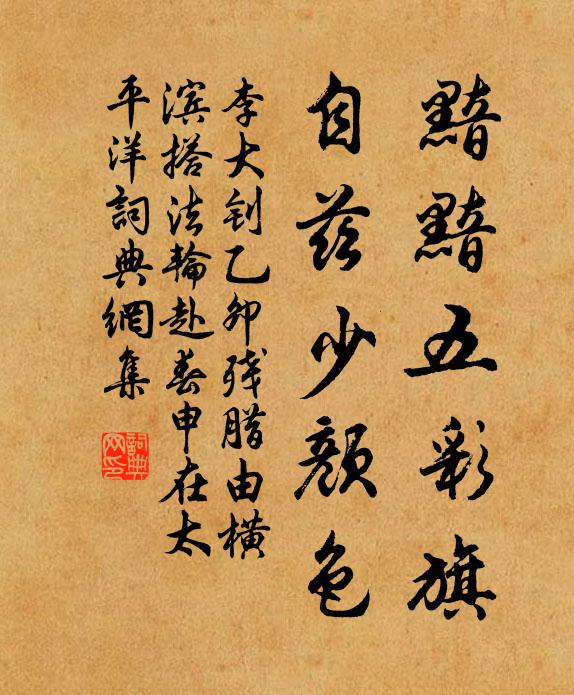 黯黯五彩旗
自茲少顏色
李大钊乙卯残腊由横
滨搭法輪赴春申在太
平洋詞典網集
詞典
网印